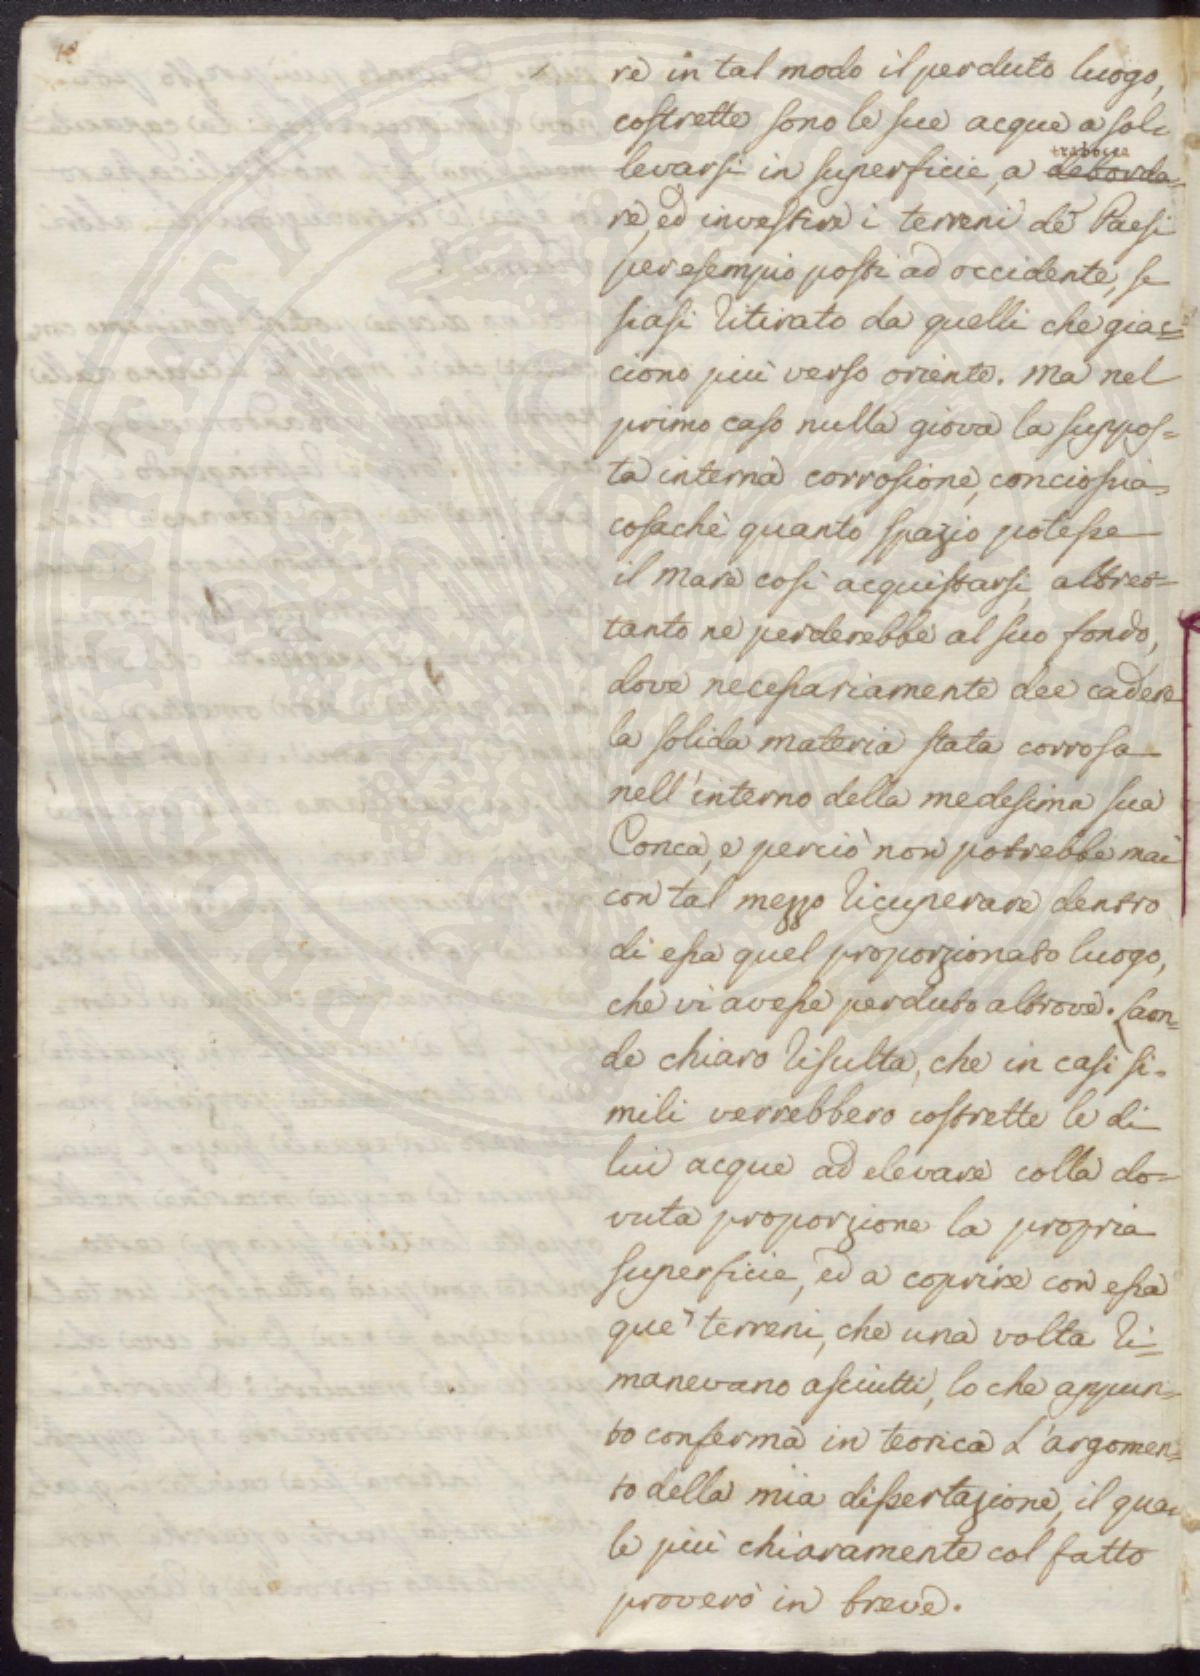 re in tal modo il perduto luogo,
costrette sono le sue acque a sol-
levarsi in superficie, a debordatrabocca
re, ed investire i terreni de' Paesi
per esempio posti ad occidente, se
siasi ritirato da quelli che giac=
ciono più verso oriente. Ma nel
primo caso nulla giova la suppos=
ta interna corrosione, conciossia
cosachè quanto spazio potesse
il mare così acquistarsi, altret=
tanto ne perderebbe al suo fondo,
dove necessariamente dee cadere
la solida materia stata corrosa
nell'interno della medesima sua
Conca, e perciò non potrebbe mai
con tal mezzo ricuperare dentro
di essa quel proporzionato luogo,
che vi avesse perduto altrove. Laon=
de chiaro risulta, che in casi si-
mili verrebbero costrette le di
lui acque ad elevare colla do=
vuta proporzione la propria
superficie, ed a coprire con essa
que' terreni, che una volta ri=
manevano asciutti, lo che appun=
to conferma in teorica l'argomen=
to della mia dissertazione, il qua=
le più chiaramente col fatto
proverò in breve.